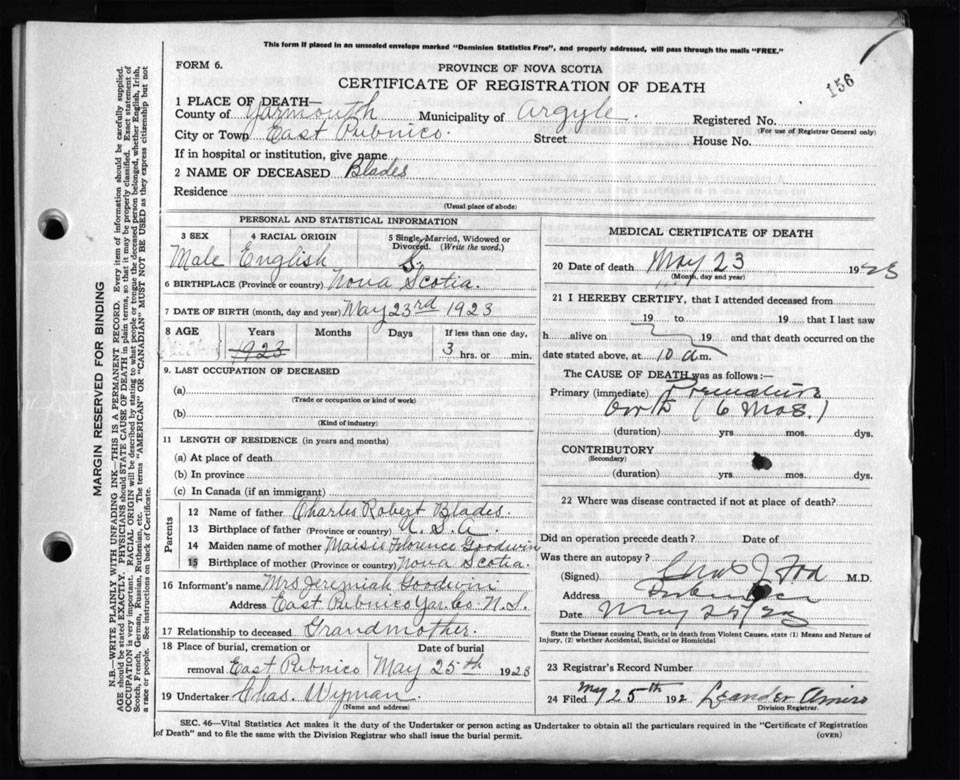 This form if placed in an unsealed envelope marked "Dominion Statistics Free", and properly addressed, will pass through the mails "FREE."
156
FORM 6.
PROVINCE OF NOVA SCOTIA
CERTIFICATE OF REGISTRATION OF DEATH
1 PLACE OF DEATH—
County of Yarmouth Municipality of Argyle. Registered No.
(For use of Registrar General only)
City or Town East Pubnico. Street House No.
If in hospital or institution, give name
2 NAME OF DECEASED Blades
Residence
(Usual place of abode)
PERSONAL AND STATISTICAL INFORMATION
3 SEX 4 RACIAL ORIGIN 5 Single, Married, Widowed or Divorced. (Write the word.)
Male English S.
6 BIRTHPLACE (Province or country) Nova Scotia.
7 DATE OF BIRTH (month, day and year) May 23rd 1923
8 AGE Years Months Days If less than one day,
1923 3 hrs. or min.
9. LAST OCCUPATION OF DECEASED
(a)
(Trade or occupation or kind of work)
(b)
(Kind of industry)
11 LENGTH OF RESIDENCE (in years and months)
(a) At place of death
(b) In province
(c) In Canada (if an immigrant)
Parents
12 Name of father Charles Robert Blades.
13 Birthplace of father (Province or country) U.S.A.
14 Maiden name of mother Maisie Florence Goodwin
15 Birthplace of mother (Province or country) Nova Scotia.
16 Informant's name Mrs Jeremiah Goodwin
Address East Pubnico Yar. Co. N.S.
17 Relationship to deceased Grandmother.
18 Place of burial, cremation or removal East Pubnico Date of burial May 25th 1923
19 Undertaker Chas. Wyman.
(Name and address)
MEDICAL CERTIFICATE OF DEATH
20 Date of death May 23 1923
(Month, day and year)
21 I HEREBY CERTIFY, that I attended deceased from
19 to 19 that I last saw
h alive on 19 and that death occurred on the
date stated above, at 10 a m.
The CAUSE OF DEATH was as follows:—
Primary (immediate) Premature
birth (6 mos.)
(duration) yrs. mos. dys.
CONTRIBUTORY
(Secondary)
(duration) yrs. mos. dys.
22 Where was disease contracted if not at place of death?
Did an operation precede death? Date of
Was there an autopsy?
(Signed) M.D.
Address Pubnico
Date May 25/23
State the Disease causing Death, or in death from Violent Causes, state (1) Means and Nature of Injury, (2) whether Accidental, Suicidal or Homicidal
23 Registrar's Record Number
24 Filed May 25th 192 Leander Amiro
Division Registrar.
SEC. 46—Vital Statistics Act makes it the duty of the Undertaker or person acting as Undertaker to obtain all the particulars required in the "Certificate of Registration
of Death" and to file the same with the Division Registrar who shall issue the burial permit.
(OVER)
MARGIN RESERVED FOR BINDING
N.B.—WRITE PLAINLY WITH UNFADING INK—THIS IS A PERMANENT RECORD. Every item of information should be carefully supplied.
AGE should be stated EXACTLY. PHYSICIANS should STATE CAUSE OF DEATH in plain terms, so that it may be properly classified. Exact statement of
OCCUPATION is very important. RACIAL ORIGIN will be described by stating to what people or tongue the deceased person belonged, whether English, Irish,
Scotch, French, German, Russian, Ruthenian, etc. The terms "AMERICAN" OR "CANADIAN" MUST NOT BE USED as they express citizenship but not
a race or people. See instructions on back of Certificate.